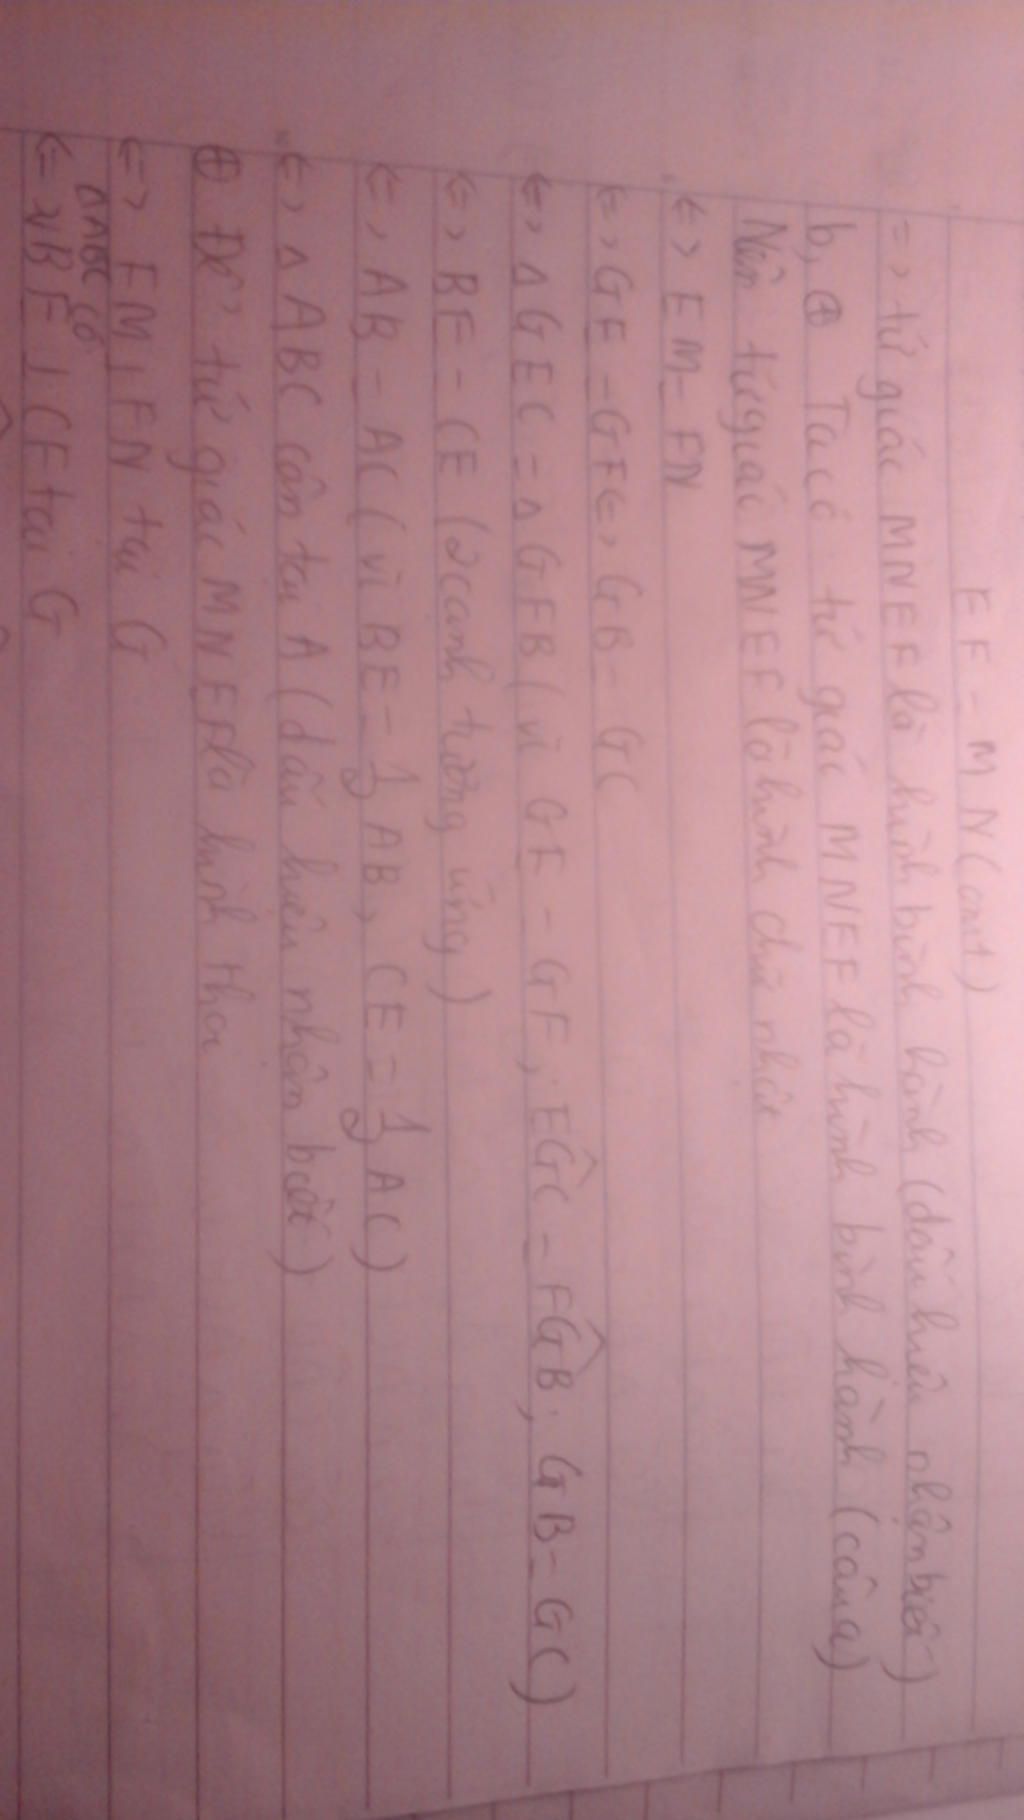 EF = MN (cmt)
=> tứ giác MNEF là hình bình hành (dấu hiệu nhận biết)
b, ⊕ Ta có tứ giác MNEF là hình bình hành (câu a)
Nên tứ giác MNEF là hình chữ nhật
<=> EM = FN
<=> GE = GF <=> GB = GC
<=> △GEC = △GFB (vì GE = GF, EĜC = FĜB, GB = GC)
<=> BF = CE (2 cạnh tương ứng)
<=> AB = AC (vì BF = 1/2 AB, CE = 1/2 AC)
<=> △ABC cân tại A (dấu hiệu nhận biết)
⊕ Để tứ giác MNEF là hình thoi
<=> EM ⊥ FN tại G
△ABC có
BE ⊥ CF tại G